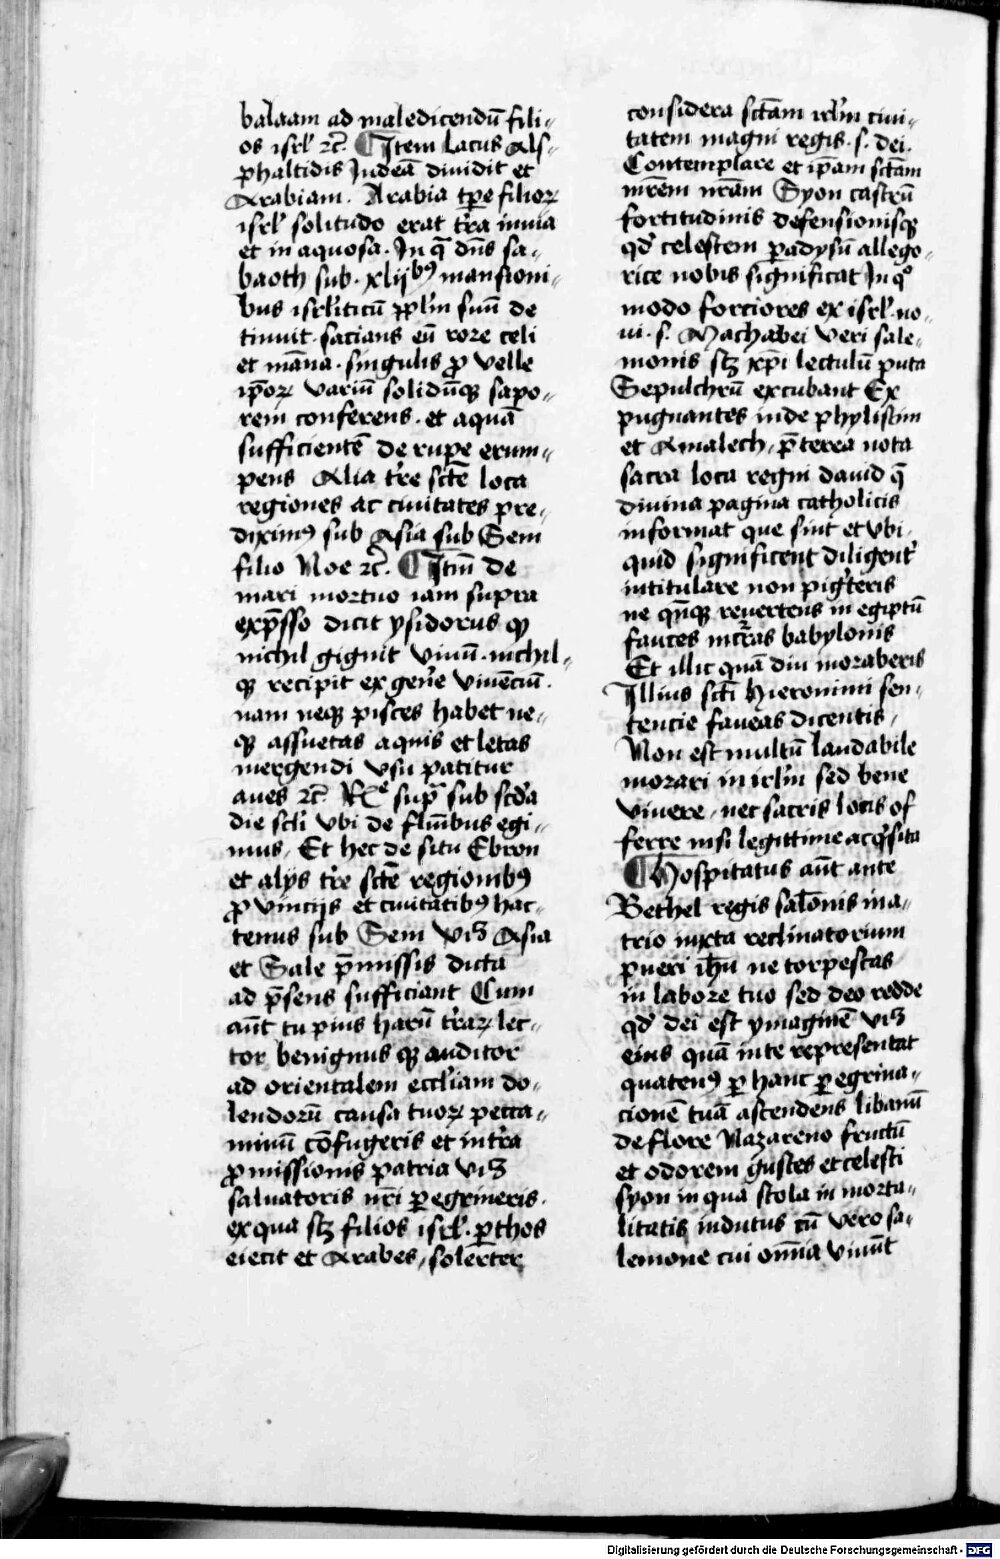 balaam ad maledicendū fili-
os isrl' ⁊c̄. Item lacus Als-
phaltidis Iudeā diuidit et
Arabiam. Arabia tp̄e filioꝝ
isrl' solitudo erat tr̄a inuia
et in aquosa. In q̄ dn̄s sa-
baoth sub. xlijbꝯ mansioni-
bus isrl'iticū ppl'm suū de
tinuit. sacians eū rore celi
et māna. singulis ꝓ velle
ip̄oꝝ variū solidūqꝫ sapo-
rem conferens. et aquā
sufficientē de rupe erum-
pens Alia tr̄e sctē loca
regiones ac ciuitates pre-
diximꝯ sub Asia sub Sem
filio Noe ⁊c̄. Itm̄ de
mari mortuo iam supra
exp̄sso dicit ysidorus qꝫ
nichil gignit viuū. nichil-
qꝫ recipit ex gen̄e viuēciū.
nam neqꝫ pisces habet ne-
qꝫ assuetas aquis et letas
mergendi vsu patitur
aues ⁊c̄. Rᵉ sup̄ sub scd̄a
die scl'i vbi de flūībus egi-
mus, Et hec de situ Ebron
et alijs tr̄e sctē regionibꝯ
ꝓvincijs et ciuitatibꝯ hac-
tenus sub Sem vrꝫ Asia
et Sale p̄missis dicta
ad p̄sens sufficiant Cum
aūt tu pius harū tr̄aꝝ lec-
tor benignus qꝫ auditor
ad orientalem eccl'iam do-
lendorū causa tuoꝝ pecca-
minū cōfugeris et intr̄a
ꝓmissionis patria vrꝫ
saluatoris nr̄i ꝑegrineris.
ex qua scꝫ filios isrl'. ꝑthos
eiecit et Arabes, solērter
considera sctām irl'm ciui-
tatem magni regis. s. dei.
Contemplare et ip̄am sctām
mr̄em nr̄am Syon castrū
fortitudinis defensionisqꝫ
qd̄ celestem ꝑadysū allego-
rice nobis significat In qͦ
modo forciores ex isrl'. no-
ui. s. Machabei veri sale-
monis scꝫ xp̄i lectulū puta
Sepulchrū excubant Ex
pugnantes inde phylistim
et Amalech, p̄terea nota
sacra loca regni dauid q̄
diuina pagina catholicis
informat que sint et vbi,
quid significent diligent̄
intitulare non pigr̄teris
ne qn̄qꝫ reuertens in egiptū
fauces incr̄as babylonis
Et illic quā diu moraberis
Illius sctī Hieronimi sen-
tencie faueas dicentis,
Non est multū laudabile
morari in irl'm sed bene
viuere, nec sacris locis of
ferre nisi legittime acq̄sita
Hospitatus aūt ante
Bethel regis salōnis ma-
trio iuxta reclinatorium
pueri ihū ne torpescas
in labore tuo sed deo redde
qd̄ dei est ymaginē vrꝫ
eius quā inte representat
quatenꝯ ꝑ hanc ꝑegrina-
cionē tuā ascendens libanū
de flore Nazareno fructū
et odorem gustes et celesti
syon in qua stola in morta-
litatis indutus cū vero sa-
lemone cui om̄ia viuūt